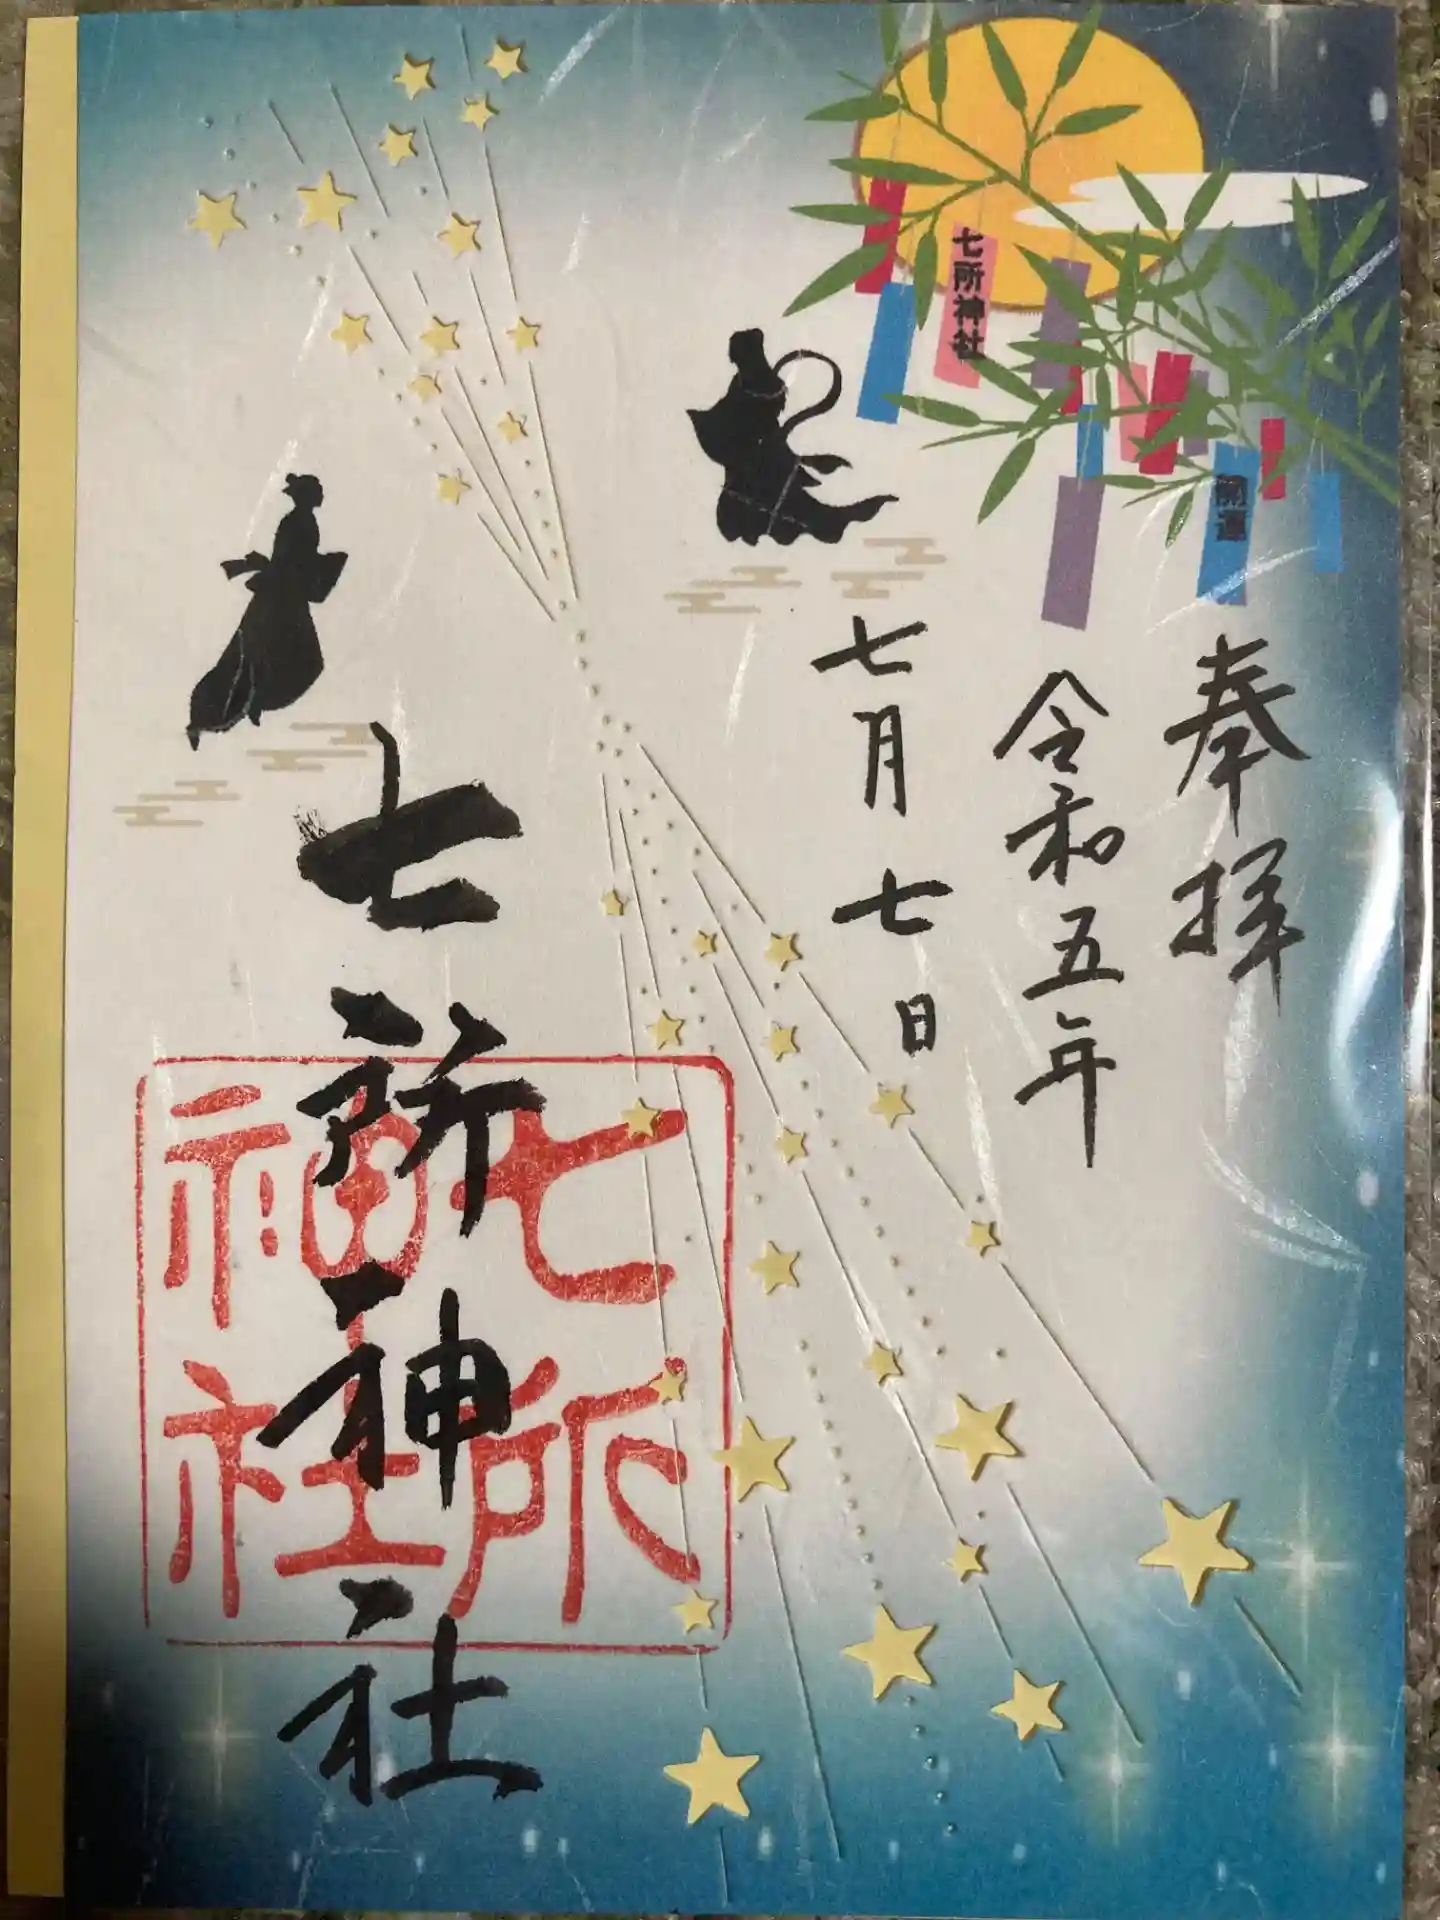 七所神社
開運
奉拝
令和五年
七月七日
七所神社
七所
神社